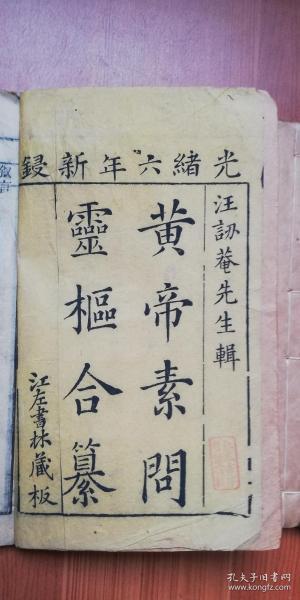 光緒六年新鋟
汪訒菴先生輯
黃帝素問
靈樞合纂
江左書林藏板
孔夫子旧书网